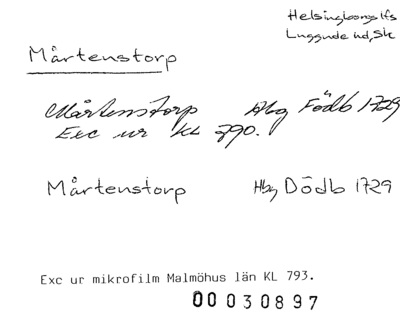 Helsingborgs lfs
Luggude hd, Sk
Mårtenstorp
Mårtenstorp Hbg Födb 1729
Exc ur KL 790.
Mårtenstorp Hbg Dödb 1729
Exc ur mikrofilm Malmöhus län KL 793.
00 030897